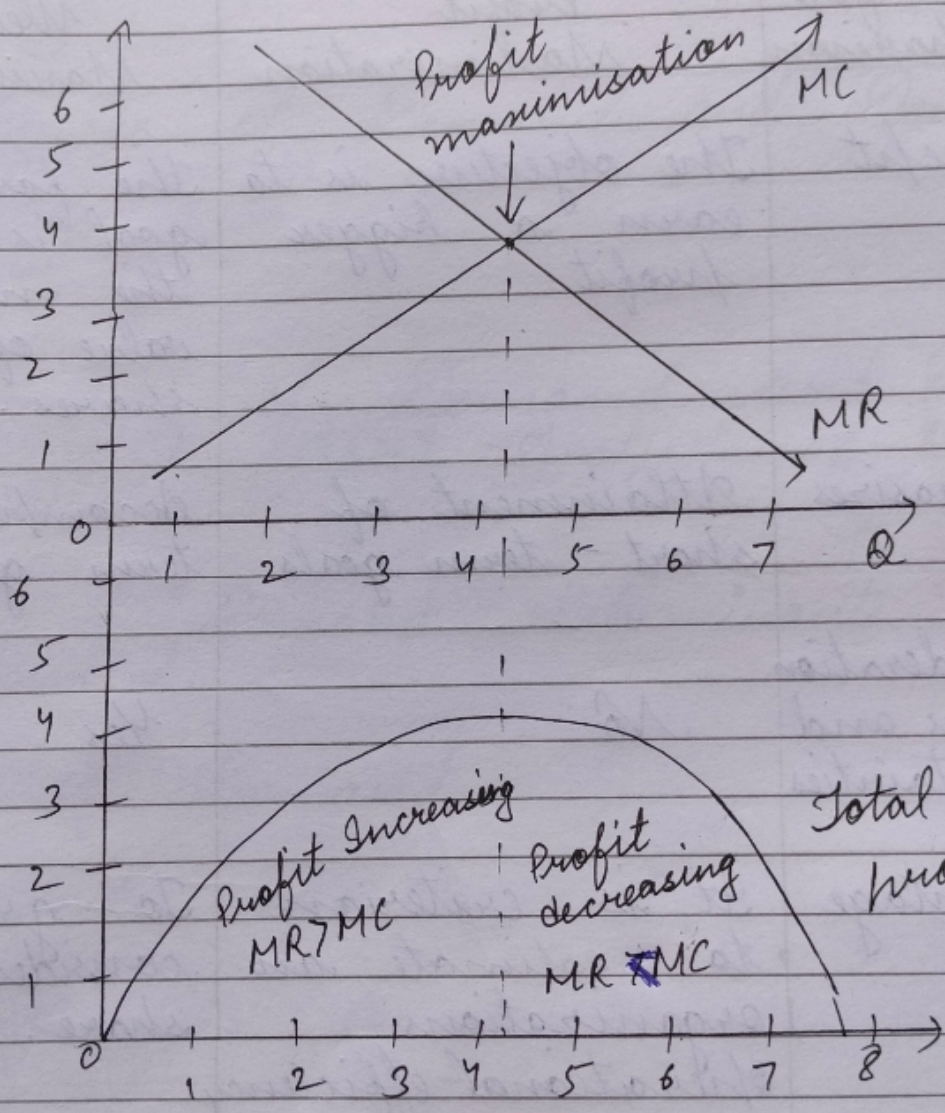 Profit
maximisation
MC
6
5
4
3
2
1
MR
0
1 2 3 4 5 6 7 Q
6
5
4
3
2
1
Profit Increasing
MR>MC
Profit
decreasing
MR <MC
Total
0
1 2 3 4 5 6 7 8